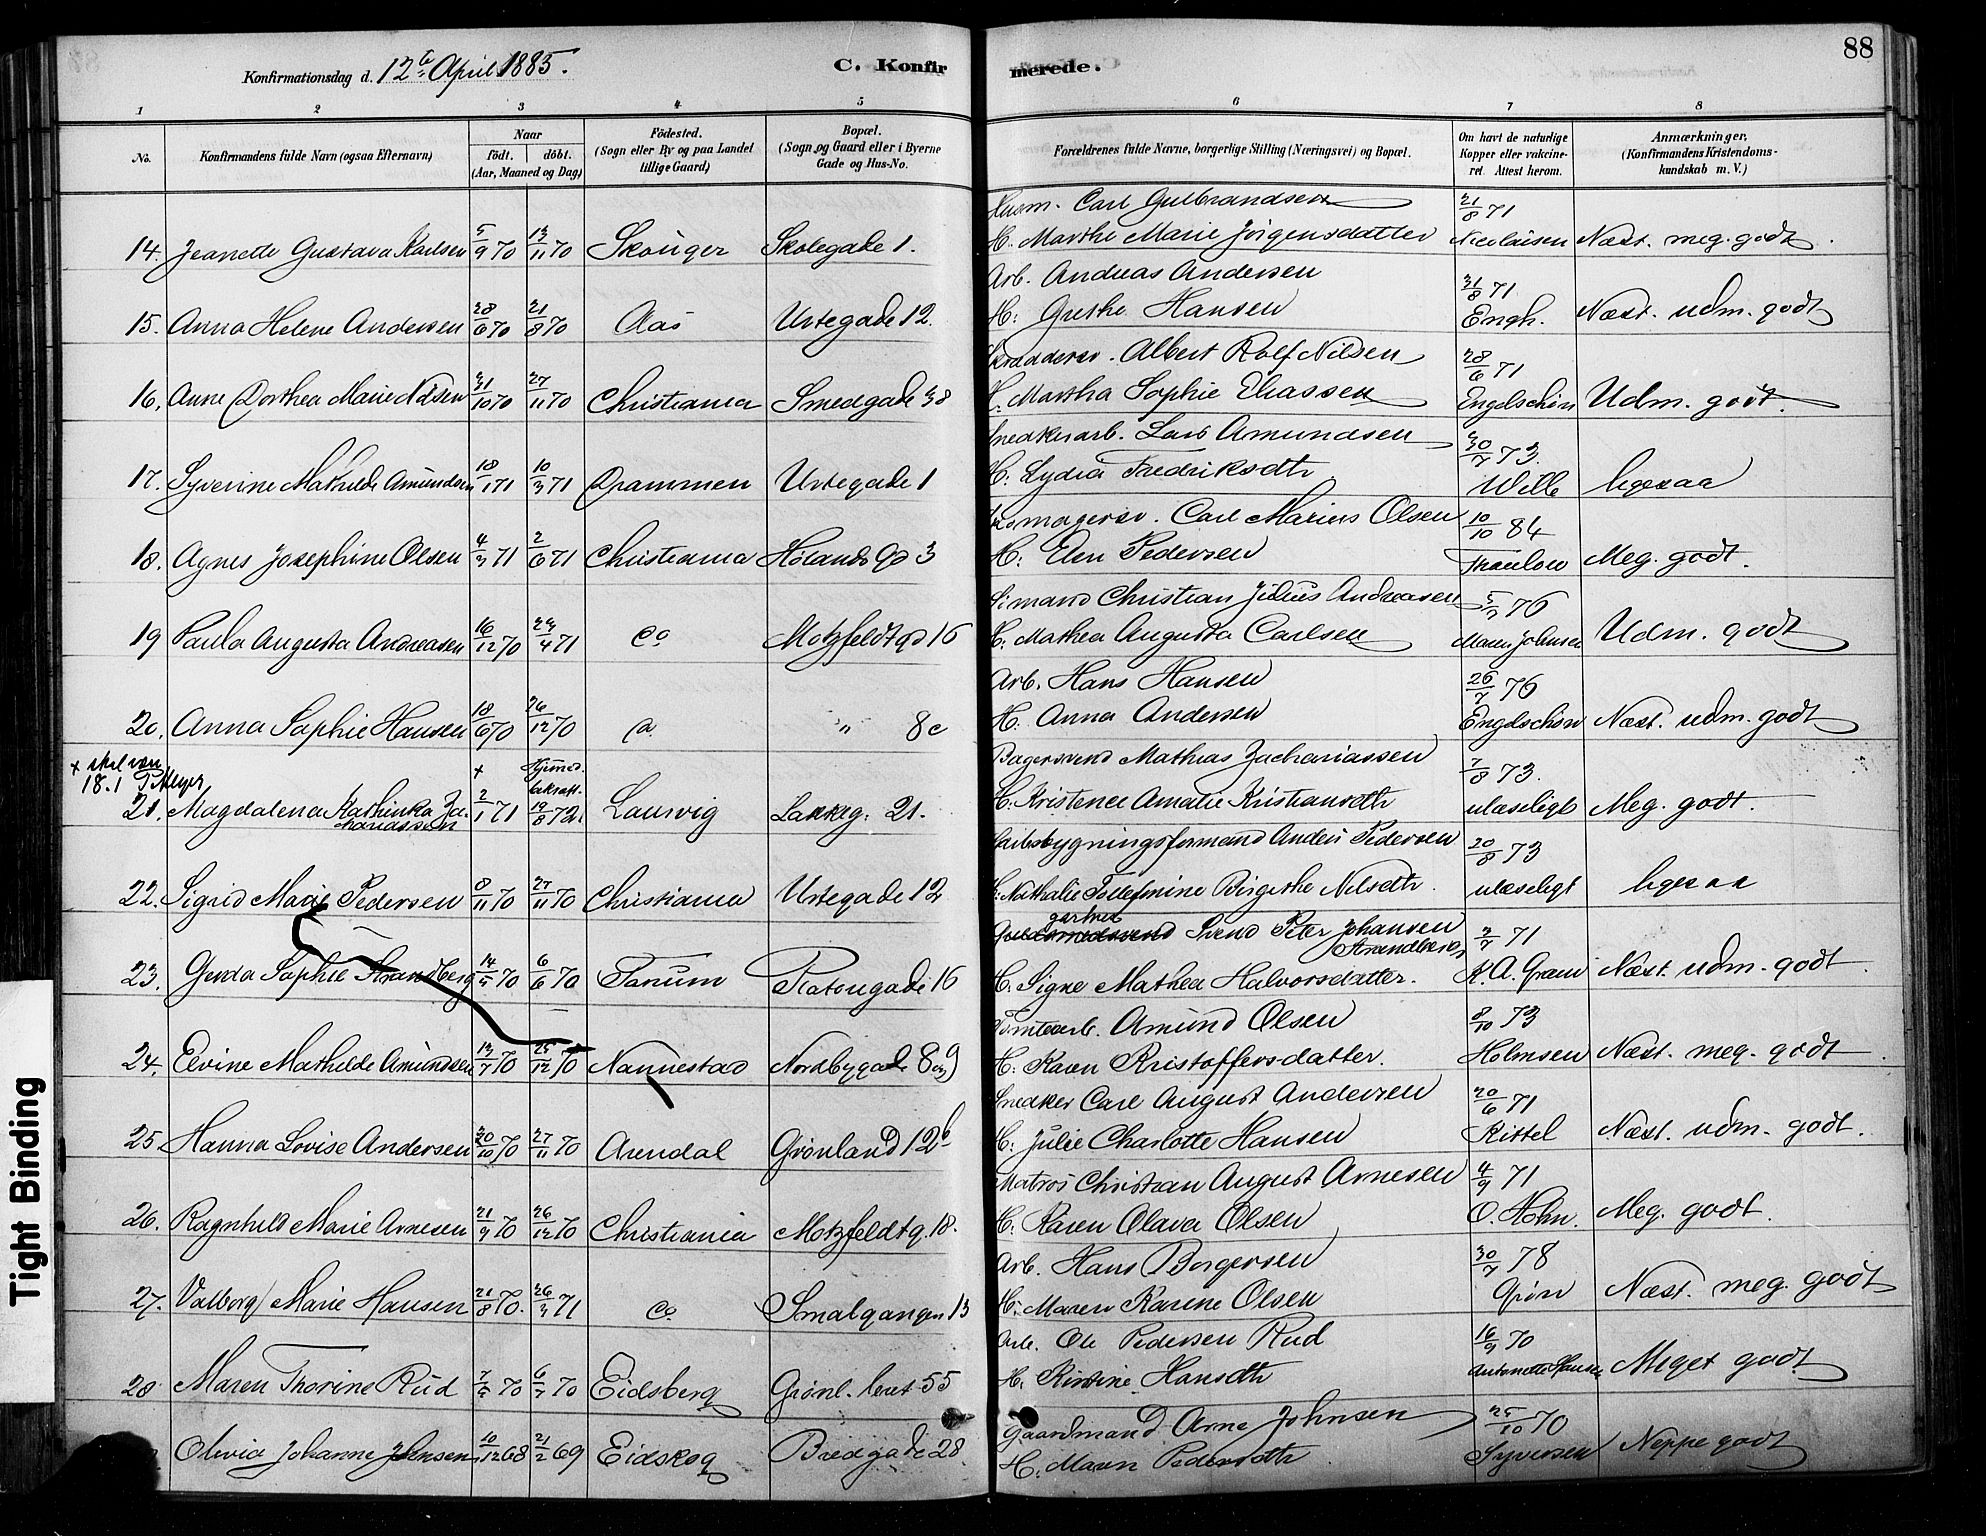 88
Konfirmationsdag d. 12te April 1885.
C. Konfirmerede.
1 2 3 4 5 6 7 8
No. Konfirmandens fulde Navn (ogsaa Efternavn) Naar født. døbt. (Aar, Maaned og Dag) Fødested. (Sogn eller By og paa Landet tillige Gaard) Bopæl. (Sogn og Gaard eller i Byerne Gade og Hus-No. Forældrenes fulde Navne, borgerlige Stilling (Næringsvei) og Bopæl. Om havt de naturlige Kopper eller vakcineret. Attest herom. Anmærkninger. (Konfirmandens Kristendomskundskab m. V.)
Husm. Carl Gulbrandsen 21/8 71
14. Jeanette Gustava Karlsen 5/9 70 13/11 70 Skouger Skolegade 1. H. Marthe Marie Jörgensdatter Nicolaisen Næst. meg. godt.
Arb. Andreas Andersen 31/8 71
15. Anna Helene Andersen 28/6 70 21/8 70 Aas Urtegade 12. H: Grethe Hansen Engh. Næst. udm. godt
Skrædersv. Albert Rolf Nilsen 28/6 71
16. Anne Dorthea Marie Nilsen 31/10 70 27/11 70 Christiania Smedgade 38 H. Martha Sophie Eliassen Engelschiøn Udm. godt.
Snedkerarb. Lars Amundsen 30/7 73.
17. Syverine Mathilde Amundsen 18/1 71 10/3 71 Drammen Urtegade 1 H. Lydia Fredriksdtr Wille ligesaa
Skomagersv. Carl Marius Olsen 10/10 84
18. Agnes Josephine Olsen 4/3 71 2/6 71 Christiania Hølands Gd 3 H: Elen Pedersen Thaulow Meg. godt.
Sømand Christian Julius Andreasen 5/7 76
19 Paula Augusta Andreasen 16/12 70 23/4 71 Co. Motzfeldtgd 16 H. Mathea Augusta Carlsen Maren Johnsen Udm. godt
Arb. Hans Hansen 26/7 76
20. Anna Sophie Hansen 18/6 70 26/12 70 Co. " 8c H. Anna Andersen Engelschiøn Næst. udm. godt
+ skal være 18.1 P. Meyer + Hjemmed. bekræft. Bagersvend Mathias Zachariassen 7/8 73.
21. Magdalena Kathinka Zachariassen 2/1 71 19/8 72 Laurvig Lakkeg: 21. H. Kristence Amalie Kristiansdtr ulæseligt Meg. godt.
Skibsbygningsformand Anders Pedersen 20/8 73
22. Sigrid Marie Pedersen 8/11 70 27/11 70 Christiania Urtegade 12 H. Nathalie Tollefmine Birgithe Nilsdtr. ulæseligt ligesaa
gartner Svend Peter Johansen Strandberg 3/7 71
23. Gerda Sophie Strandberg 14/5 70 6/6 70 Tanum Platougade 16 H. Signe Mathea Halvorsdatter. K. A. Gram Næst. udm. godt.
Tomtearb. Amund Olsen 8/10 73
24. Elvine Mathilde Amundsen 13/7 70 25/12 70 Nannestad Nordbygade 8 og 9 H. Karen Kristoffersdatter. Holmsen Næst. meg. godt.
Snedker Carl August Andersen 20/6 71
25. Hanna Lovise Andersen 20/10 70 27/11 70 Arendal Grønland 12b H. Julie Charlotte Hansen Kittel Næst. udm. godt.
Matros Christian August Arnesen 4/9 71
26. Ragnhild Marie Arnesen 21/9 70 26/12 70 Christiania Motzfeldtg. 18. H. Karen Olava Olsen O. Hohn. Meg. godt.
Arb. Hans Borgersen 30/7 78
27. Valborg Marie Hansen 21/8 70. 26/3 71 Co. Smalgangen 13 H. Maren Karine Olsen Grøn Næst. meg. godt
Arb. Ole Pedersen Rud 16/9 70
28 Maren Thorine Rud 7/5 70 6/7 70 Eidsberg Grønl. leret 55 H. Kirstine Hansdtr Antonette Hansen Meget godt
Gaardmand Arne Johnsen 25/10 70
Olivia Johanne Johnsen 10/12 68 21/2 69 Eidskog Bredgade 28. H. Maren Pedersdtr Syversen Neppe godt
Tight Binding